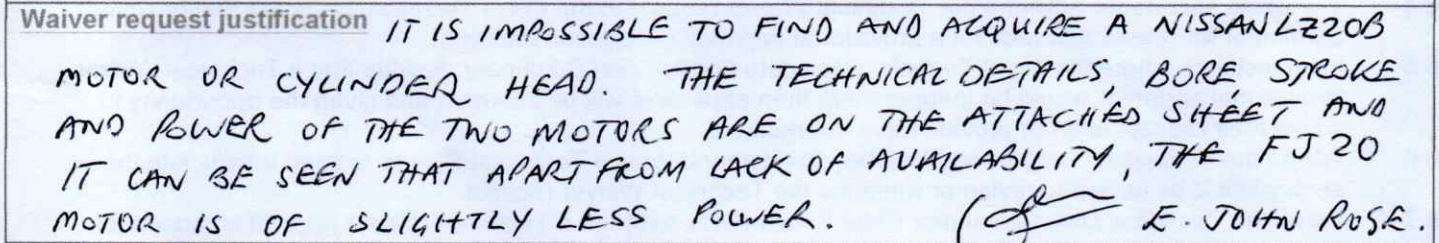 Waiver request justification IT IS IMPOSSIBLE TO FIND AND ACQUIRE A NISSAN LZ20B
MOTOR OR CYLINDER HEAD. THE TECHNICAL DETAILS, BORE, STROKE
AND POWER OF THE TWO MOTORS ARE ON THE ATTACHED SHEET AND
IT CAN BE SEEN THAT APART FROM LACK OF AVAILABILITY, THE FJ20
MOTOR IS OF SLIGHTLY LESS POWER. E. JOHN ROSE.